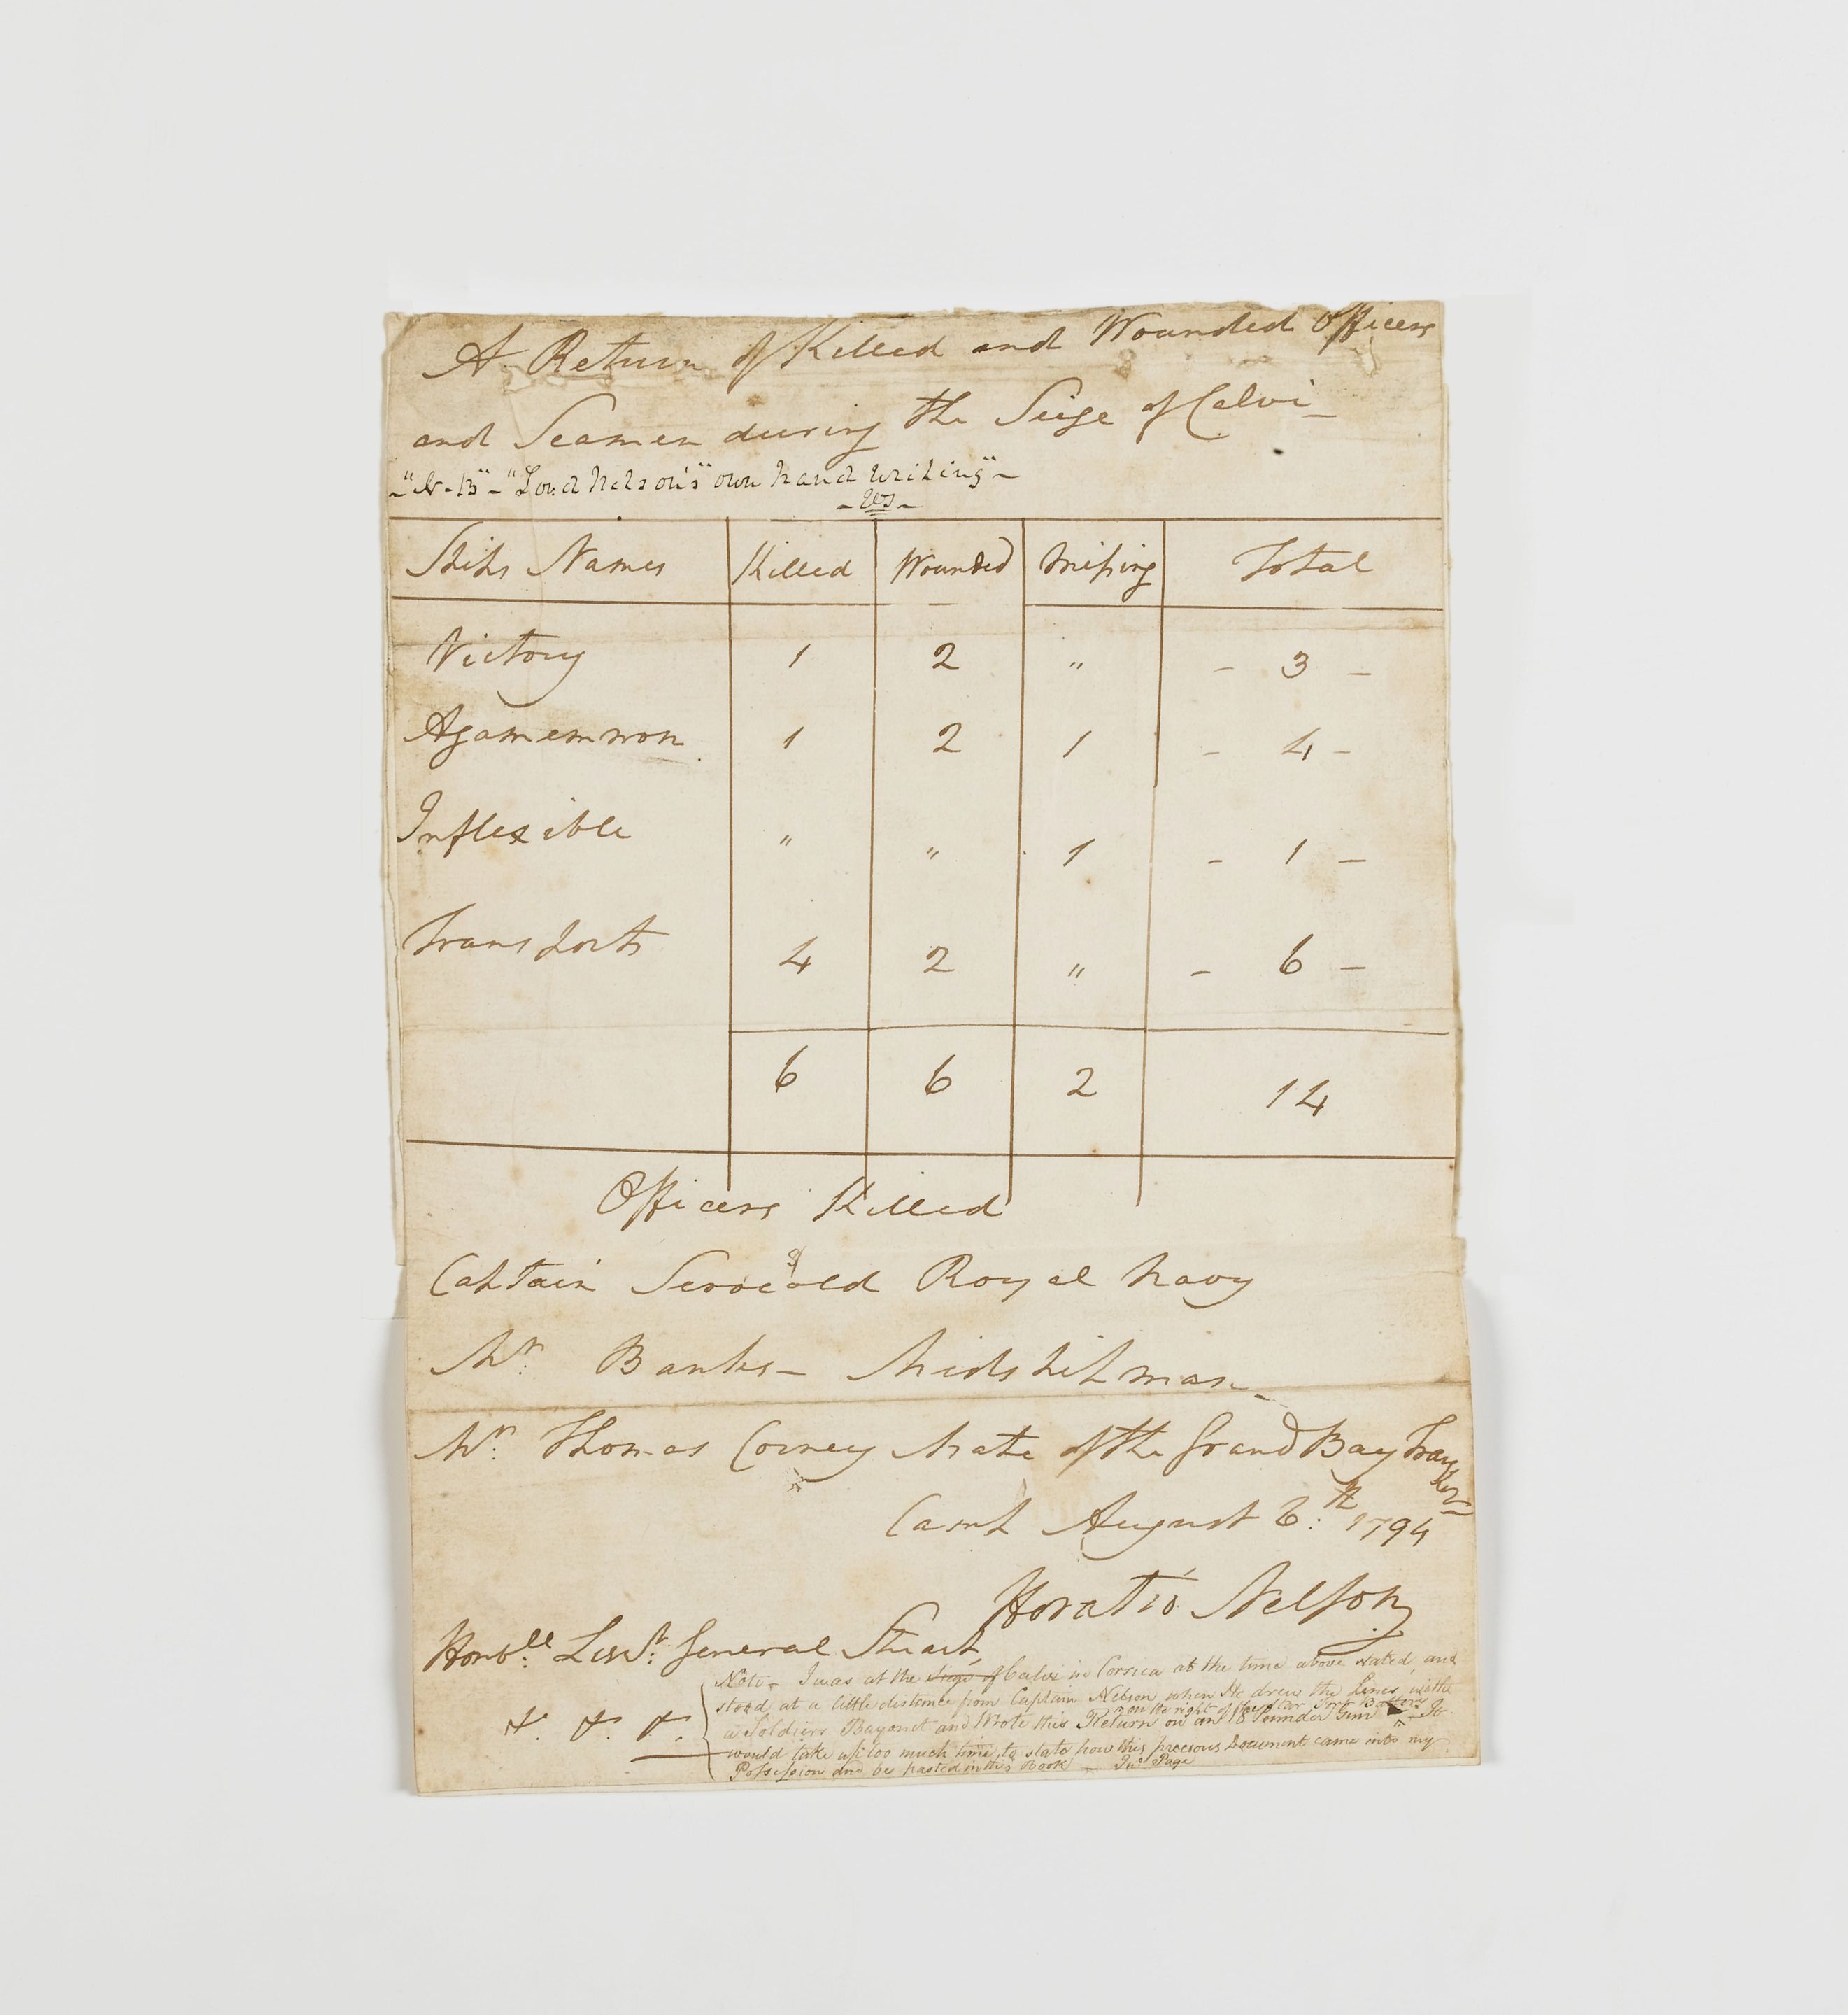 A Return of Killed and Wounded Officers
and Seamen during the Seige of Calvi –
– "N-B" – "Lord Nelson's" own hand writing" –
Ships Names Killed Wounded Missing Total
Victory 1 2 " – 3 –
Agamemnon 1 2 1 – 4 –
Inflexible " " 1 – 1 –
Transports 4 2 " – 6 –
6 6 2 14
Officers Killed
Captain Serocold Royal Navy
Mr. Banks – Midshipman –
Mr. Thomas Corney Mate of the Grand Bay Transport
Camp August 6th: 1794
Horatio Nelson
Honble: Lieut: General Stuart,
&. &. &.
Note – I was at the Siege of Calvi in Corsica at the time above stated, and
stood at a little distance from Captain Nelson when He drew the Lines with
a Soldiers Bayonet and Wrote this Return on an 18 Pounder Gun on the right of the Star Fort Battery – It
would take up too much time to state how this precious Document came into my
Possession and be pasted in this Book – Jns Page